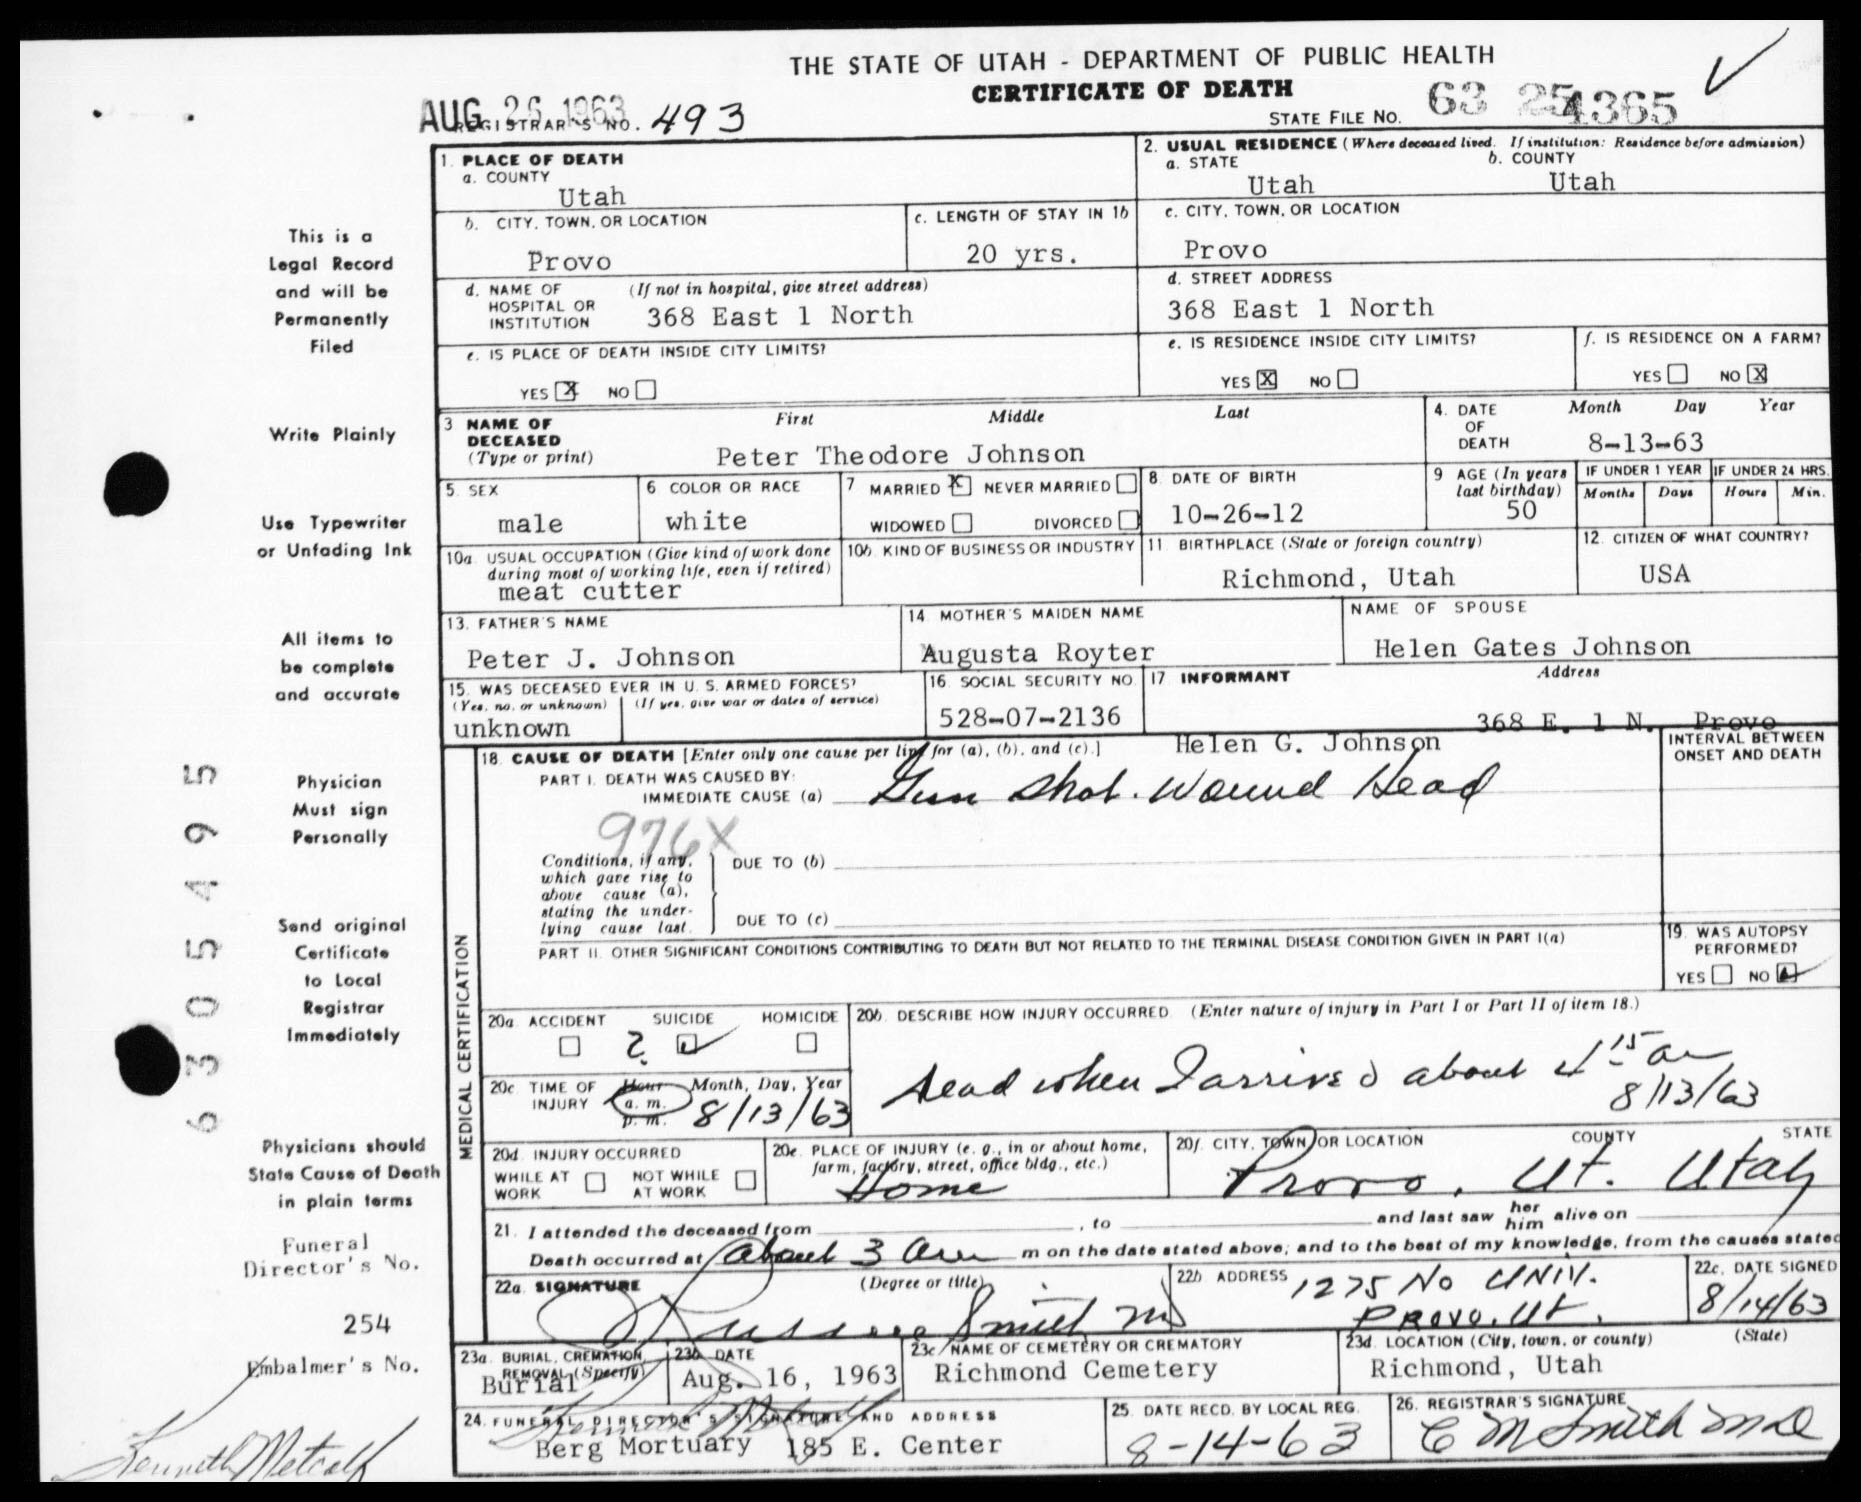 THE STATE OF UTAH - DEPARTMENT OF PUBLIC HEALTH
CERTIFICATE OF DEATH
AUG 26 1963
REGISTRAR'S NO. 493
STATE FILE NO. 63 25 4365
This is a
Legal Record
and will be
Permanently
Filed
Write Plainly
Use Typewriter
or Unfading Ink
All items to
be complete
and accurate
Physician
Must sign
Personally
Send original
Certificate
to Local
Registrar
Immediately
Physicians should
State Cause of Death
in plain terms
Funeral
Director's No.
254
Embalmer's No.
Kenneth Metcalf
6305495
1. PLACE OF DEATH
a. COUNTY
Utah
2. USUAL RESIDENCE (Where deceased lived. If institution: Residence before admission)
a. STATE b. COUNTY
Utah Utah
b. CITY, TOWN, OR LOCATION
Provo
c. LENGTH OF STAY IN 1b
20 yrs.
c. CITY, TOWN, OR LOCATION
Provo
d. NAME OF (If not in hospital, give street address)
HOSPITAL OR
INSTITUTION 368 East 1 North
d. STREET ADDRESS
368 East 1 North
e. IS PLACE OF DEATH INSIDE CITY LIMITS?
YES X NO
e. IS RESIDENCE INSIDE CITY LIMITS?
YES X NO
f. IS RESIDENCE ON A FARM?
YES NO X
3 NAME OF First Middle Last
DECEASED
(Type or print) Peter Theodore Johnson
4. DATE Month Day Year
OF
DEATH 8-13-63
5. SEX
male
6 COLOR OR RACE
white
7 MARRIED X NEVER MARRIED
WIDOWED DIVORCED
8. DATE OF BIRTH
10-26-12
9 AGE (In years
last birthday)
50
IF UNDER 1 YEAR IF UNDER 24 HRS.
Months Days Hours Min.
10a. USUAL OCCUPATION (Give kind of work done
during most of working life, even if retired)
meat cutter
10b. KIND OF BUSINESS OR INDUSTRY
11 BIRTHPLACE (State or foreign country)
Richmond, Utah
12. CITIZEN OF WHAT COUNTRY?
USA
13. FATHER'S NAME
Peter J. Johnson
14. MOTHER'S MAIDEN NAME
Augusta Royter
NAME OF SPOUSE
Helen Gates Johnson
15. WAS DECEASED EVER IN U. S. ARMED FORCES?
(Yes, no, or unknown) (If yes, give war or dates of service)
unknown
16. SOCIAL SECURITY NO.
528-07-2136
17 INFORMANT Address
368 E. 1 N. Provo
Helen G. Johnson
18. CAUSE OF DEATH [Enter only one cause per line for (a), (b), and (c).]
INTERVAL BETWEEN
ONSET AND DEATH
PART I. DEATH WAS CAUSED BY:
IMMEDIATE CAUSE (a) Gun Shot. Wound Head
976X
Conditions, if any,
which gave rise to
above cause (a),
stating the under-
lying cause last.
DUE TO (b)
DUE TO (c)
PART II. OTHER SIGNIFICANT CONDITIONS CONTRIBUTING TO DEATH BUT NOT RELATED TO THE TERMINAL DISEASE CONDITION GIVEN IN PART I(a)
19. WAS AUTOPSY
PERFORMED?
YES NO
MEDICAL CERTIFICATION
20a ACCIDENT SUICIDE HOMICIDE
?
20b. DESCRIBE HOW INJURY OCCURRED. (Enter nature of injury in Part I or Part II of item 18.)
dead when I arrived about 4 15 am
8/13/63
20c TIME OF INJURY Hour Month, Day, Year
a. m.
p. m. 8/13/63
20d. INJURY OCCURRED
WHILE AT WORK NOT WHILE AT WORK
20e. PLACE OF INJURY (e. g., in or about home,
farm, factory, street, office bldg., etc.)
Home
20f. CITY, TOWN, OR LOCATION COUNTY STATE
Provo, Ut. Utah
21. I attended the deceased from , to and last saw her him alive on
Death occurred at About 3 am m on the date stated above, and to the best of my knowledge, from the causes stated
22a. SIGNATURE (Degree or title)
Smith MD
22b ADDRESS 1275 No UNIV.
PROVO, Ut.
22c. DATE SIGNED
8/14/63
23a. BURIAL, CREMATION
REMOVAL (Specify)
Burial
23b DATE
Aug. 16, 1963
23c NAME OF CEMETERY OR CREMATORY
Richmond Cemetery
23d. LOCATION (City, town, or county) (State)
Richmond, Utah
24. FUNERAL DIRECTOR'S SIGNATURE AND ADDRESS
Kenneth Metcalf
Berg Mortuary 185 E. Center
25 DATE RECD. BY LOCAL REG.
8-14-63
26. REGISTRAR'S SIGNATURE
C M Smith MD